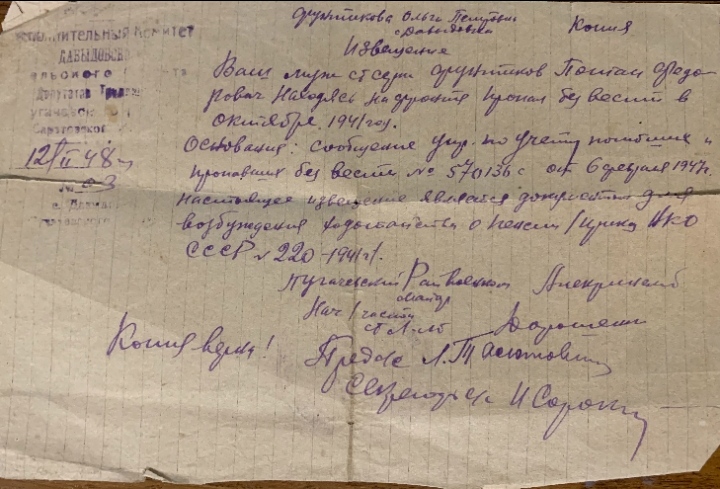 Исполнительный Комитет
Давыдовск
ельского
Депутатов Трудящ
угачевск
Саратовской
12/II 48 г
№ 93
Фружтикова Ольга Петровна
с Давыдовка
Копия
Извещение
Ваш муж ст серж Фружтиков Федо
рович Находясь на фронте пропал без вести в
октябре 1941 году.
Основания: сообщение упр. по учету погибших и
пропавших без вести № 570136 с от 6 февраля 1947г.
Настоящее извещение является документом для
возбуждения ходатайства о пенсии /приказ НКО
СССР № 220-1941г/.
Пугачевский Райвоенком
майор
Нач 1 части
ст Л-т
Копия верна!
Пред с/с Л.
Секретарь И Сорокин